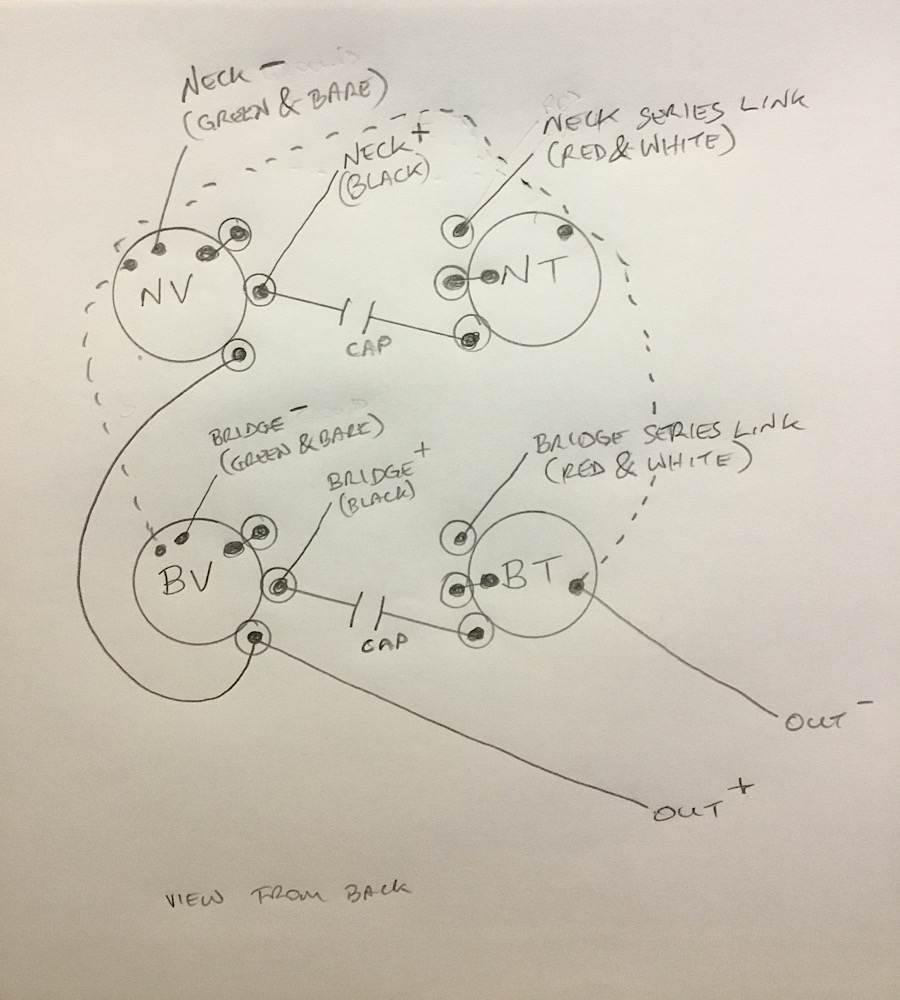 NECK -
(GREEN & BARE)
NECK +
(BLACK)
NECK SERIES LINK
(RED & WHITE)
NV
NT
CAP
BRIDGE -
(GREEN & BARE)
BRIDGE +
(BLACK)
BRIDGE SERIES LINK
(RED & WHITE)
BV
BT
CAP
OUT -
OUT +
VIEW FROM BACK